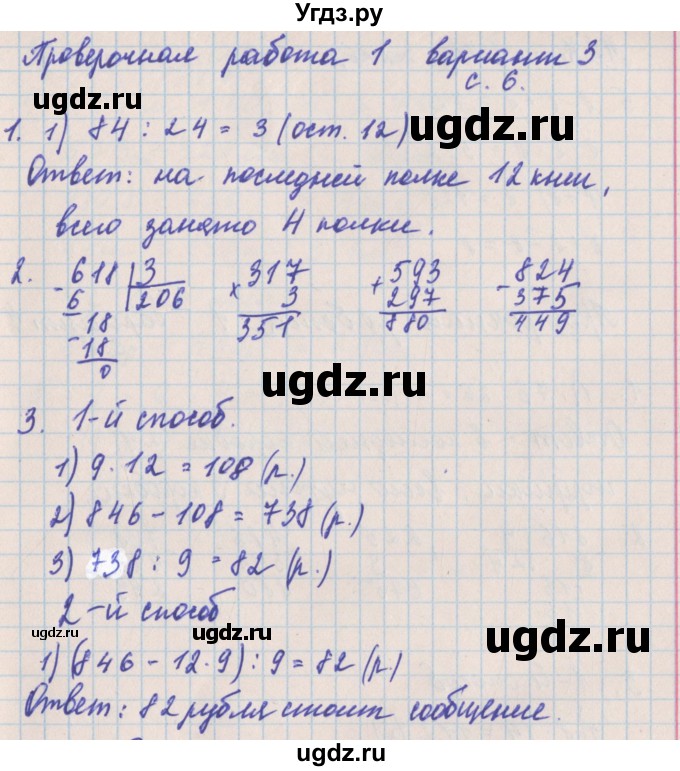 Угдз.ру
Проверочная работа 1 вариант 3
с. 6.
ugdz.ru
1. 1) 84 : 24 = 3 (ост. 12)
ugdz.ru
Ответ: на последней полке 12 книг,
всего занято 4 полки.
2. - 618 | 3
6 206
18
- 18
0
× 317
3
351
+ 593
297
880
- 824
375
449
ugdz.ru
3. 1-й способ.
1) 9 · 12 = 108 (р.)
2) 846 - 108 = 738 (р.)
3) 738 : 9 = 82 (р.)
2-й способ
ugdz.ru
ugdz.ru
ugdz.ru
1) (846 - 12 · 9) : 9 = 82 (р)
Ответ: 82 рубля стоит сообщение.
ugdz.ru
ugdz.ru